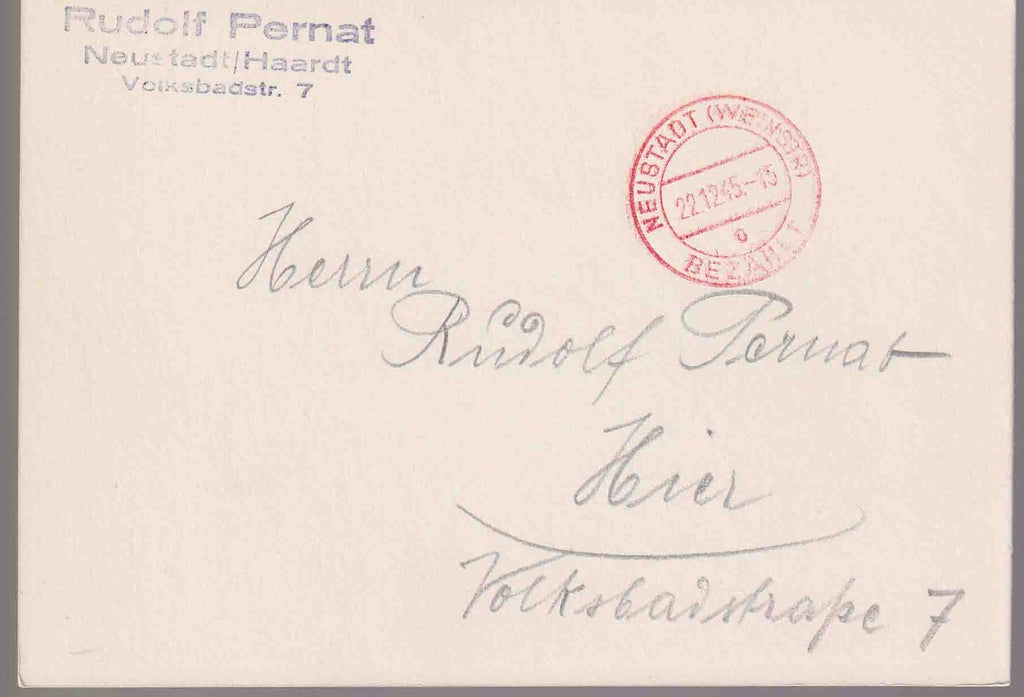 Rudolf Pernat
Neustadt/Haardt
Volksbadstr. 7
NEUSTADT (WEINSTR)
22.12.45.-15
c
BEZAHLT
Herrn
Rudolf Pernat
Hier
Volksbadstraße 7